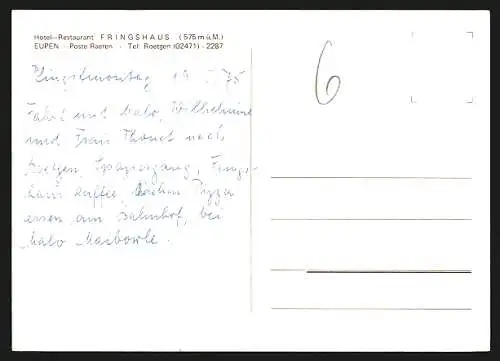 Hotel-Restaurant FRINGSHAUS (575 m ü.M.)
EUPEN - Poste Raeren - Tel: Roetgen (02471) - 2287
Pfingstmontag 19 75
6
Fahrt mit Malo, Wilhelmine
und Frau Thonet nach
Roetgen, Spaziergang, Frings-
haus Kaffee, Kuchen Pizza
essen am Bahnhof, bei
Malo Maibowle.